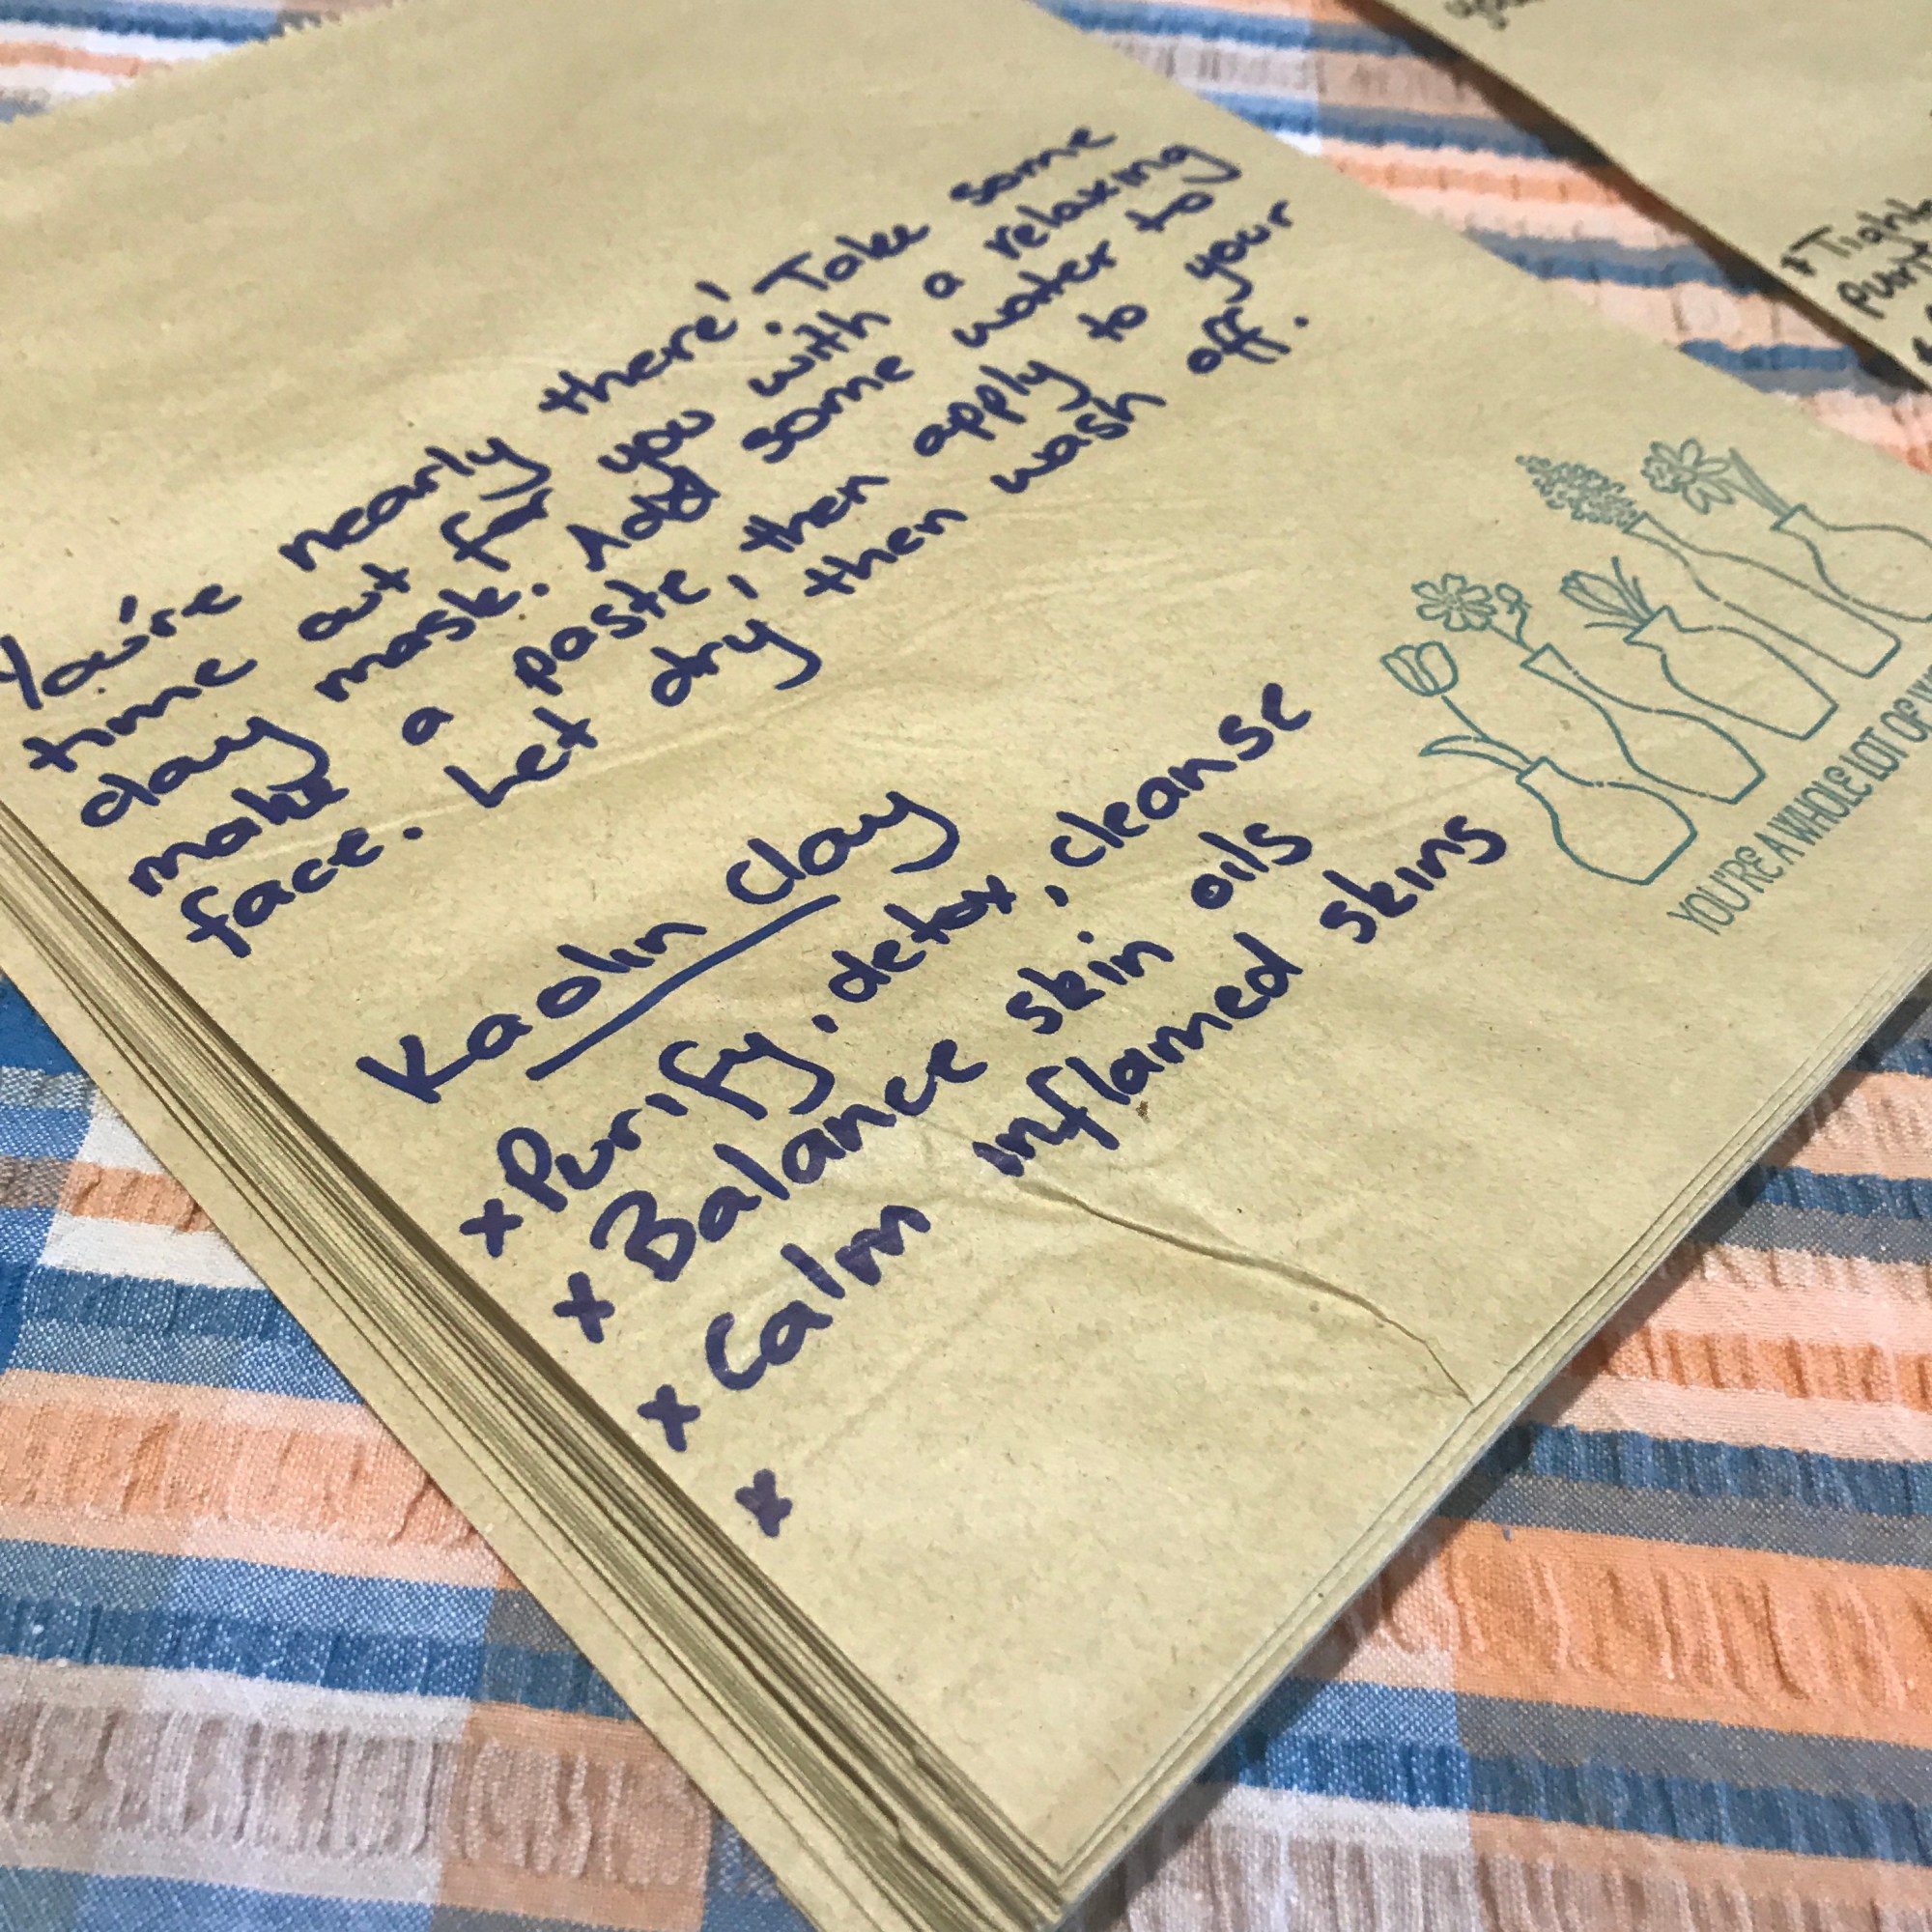 You're nearly there! Take some
time out for you with a relaxing
clay mask. Add some water to
make a paste, then apply to your
face. Let dry then wash off.
Kaolin Clay
x Purify, detox, cleanse
x Balance skin oils
x Calm inflamed skins
x
YOU'RE A WHOLE LOT OF